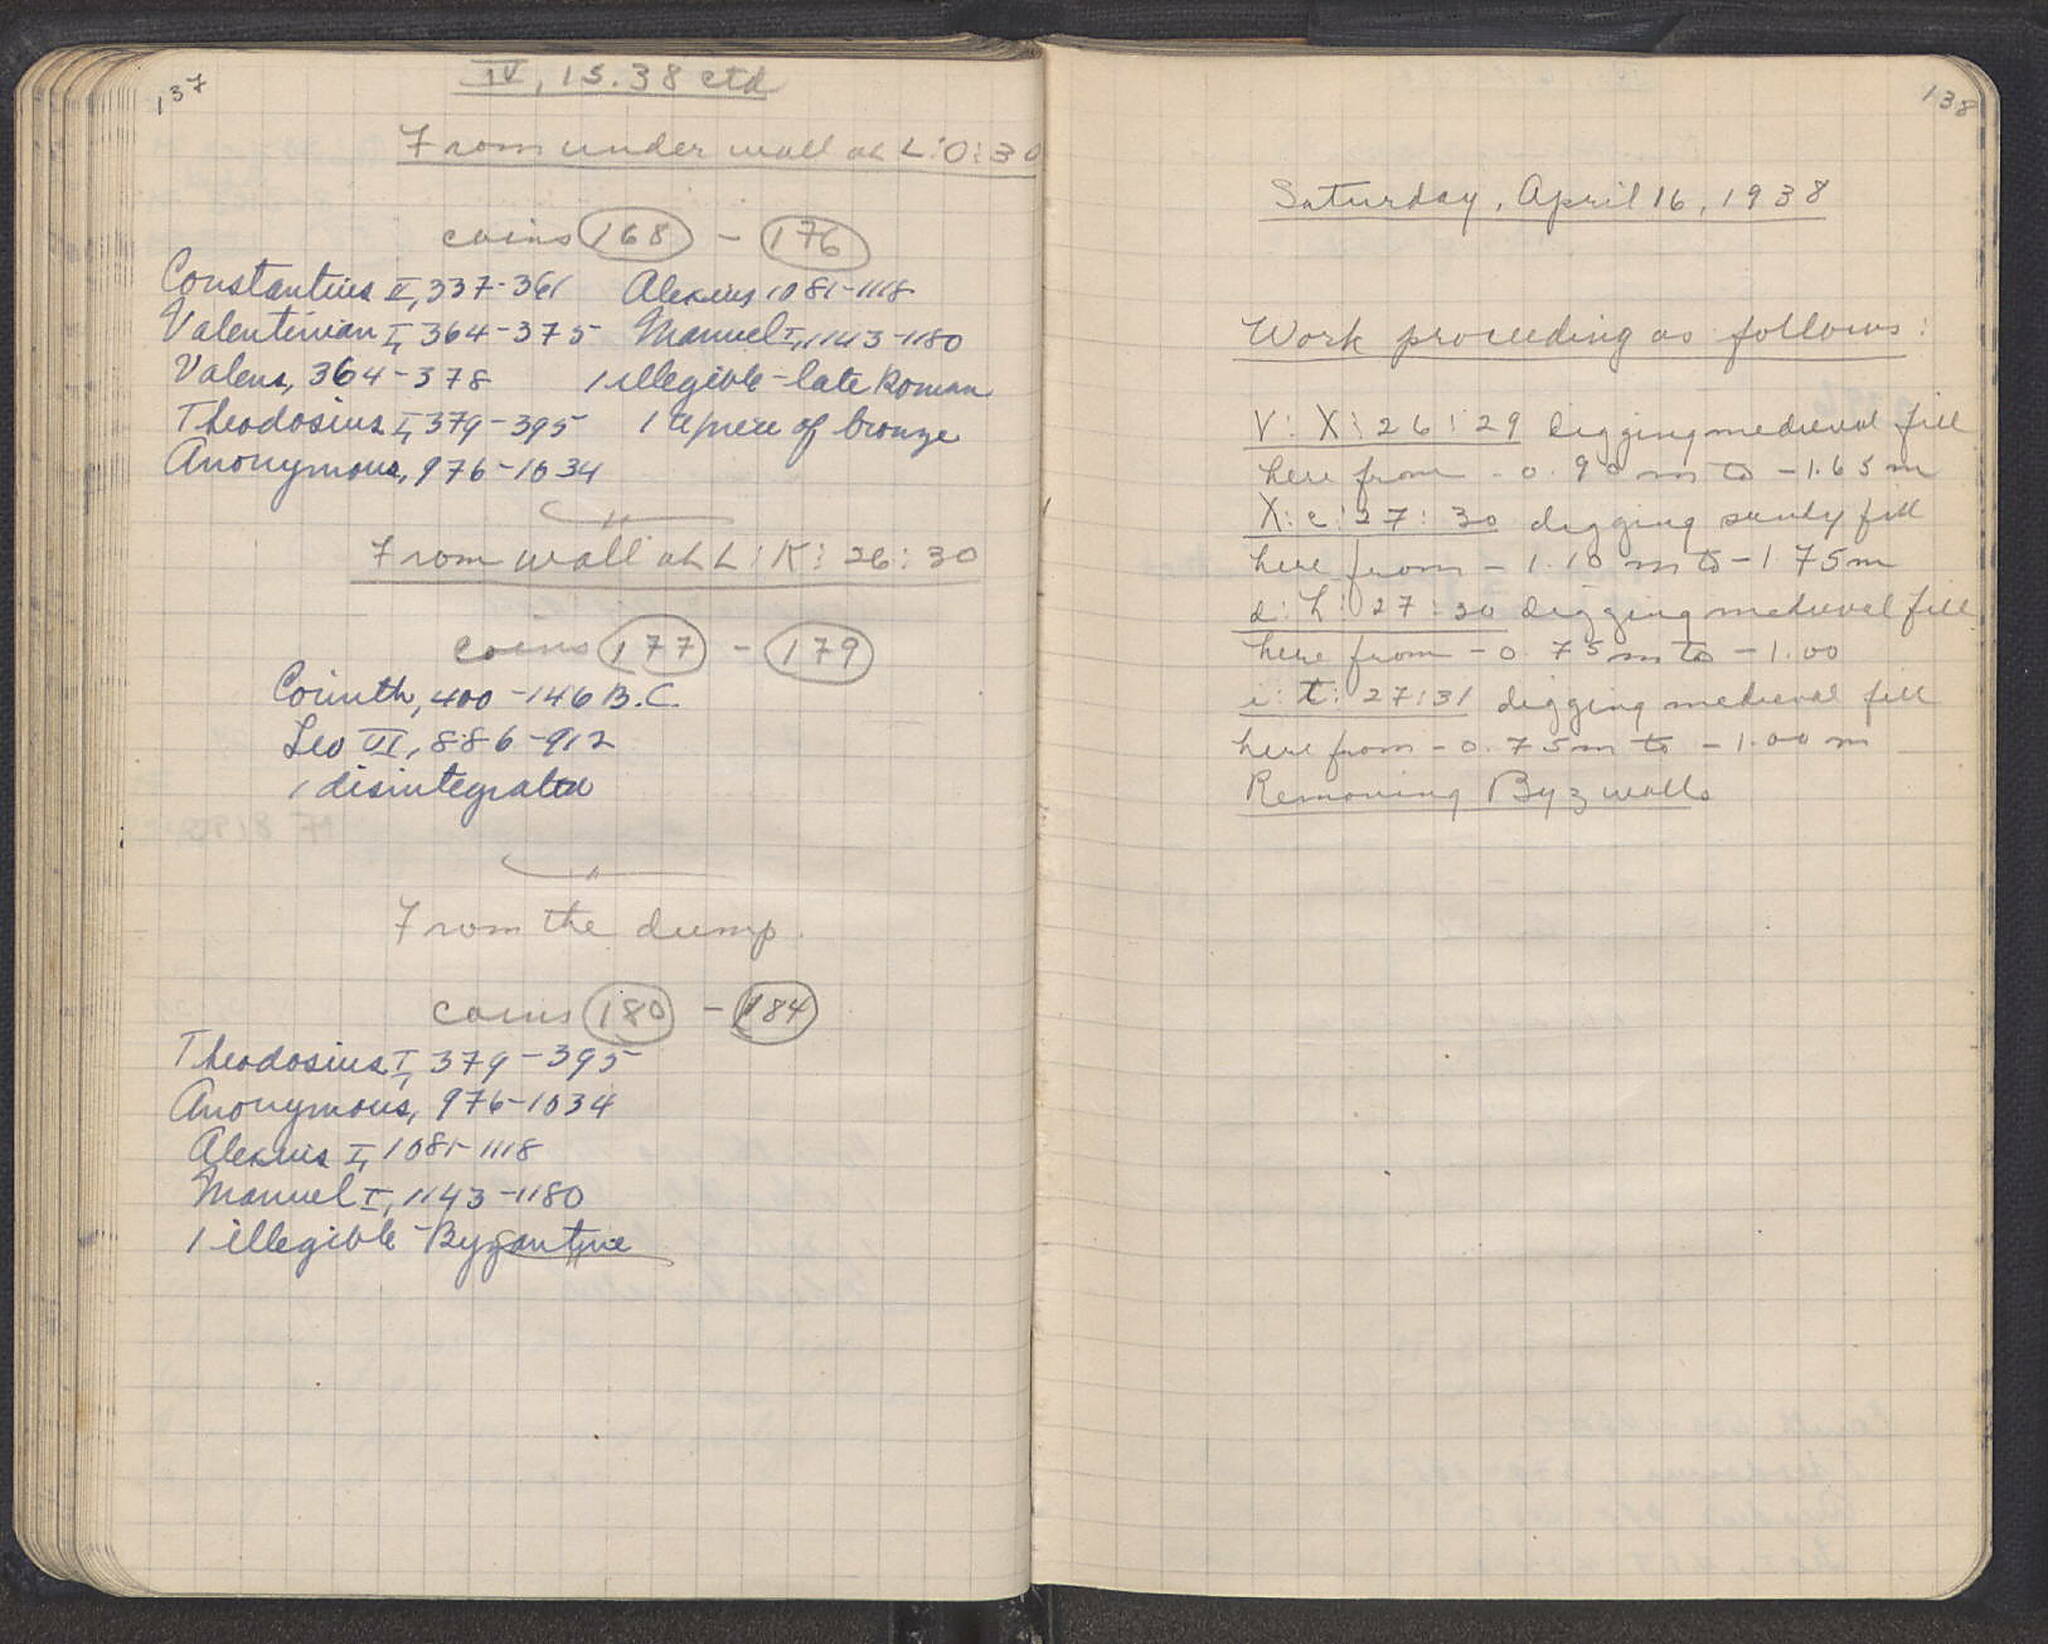 137
IV, 15.38 ctd
From under wall at L:O:30
coins 168 - 176
Constantius II, 337-361 Alexius 1081-1118
Valentinian I, 364-375 Manuel I, 1143-1180
Valens, 364-378 1 illegible-late Roman
Theodosius I, 379-395 1 piece of bronze
Anonymous, 976-1034
From wall at L:K:26:30
coins 177 - 179
Corinth, 400-146 B.C.
Leo VI, 886-912
1 disintegrated
From the dump.
coins 180 - 184
Theodosius I, 379-395
Anonymous, 976-1034
Alexius I, 1081-1118
Manuel I, 1143-1180
1 illegible-Byzantine
138
Saturday, April 16, 1938
Work proceeding as follows:
V:X:26:29 Digging medieval fill
here from -0.90 m to -1.65 m
X:c:27:30 digging sandy fill
here from -1.10 m to -1.75 m
d:h:27:30 Digging medieval fill
here from -0.75 m to -1.00
i:t:27:31 digging medieval fill
here from -0.75 m to -1.00 m
Removing Byz walls